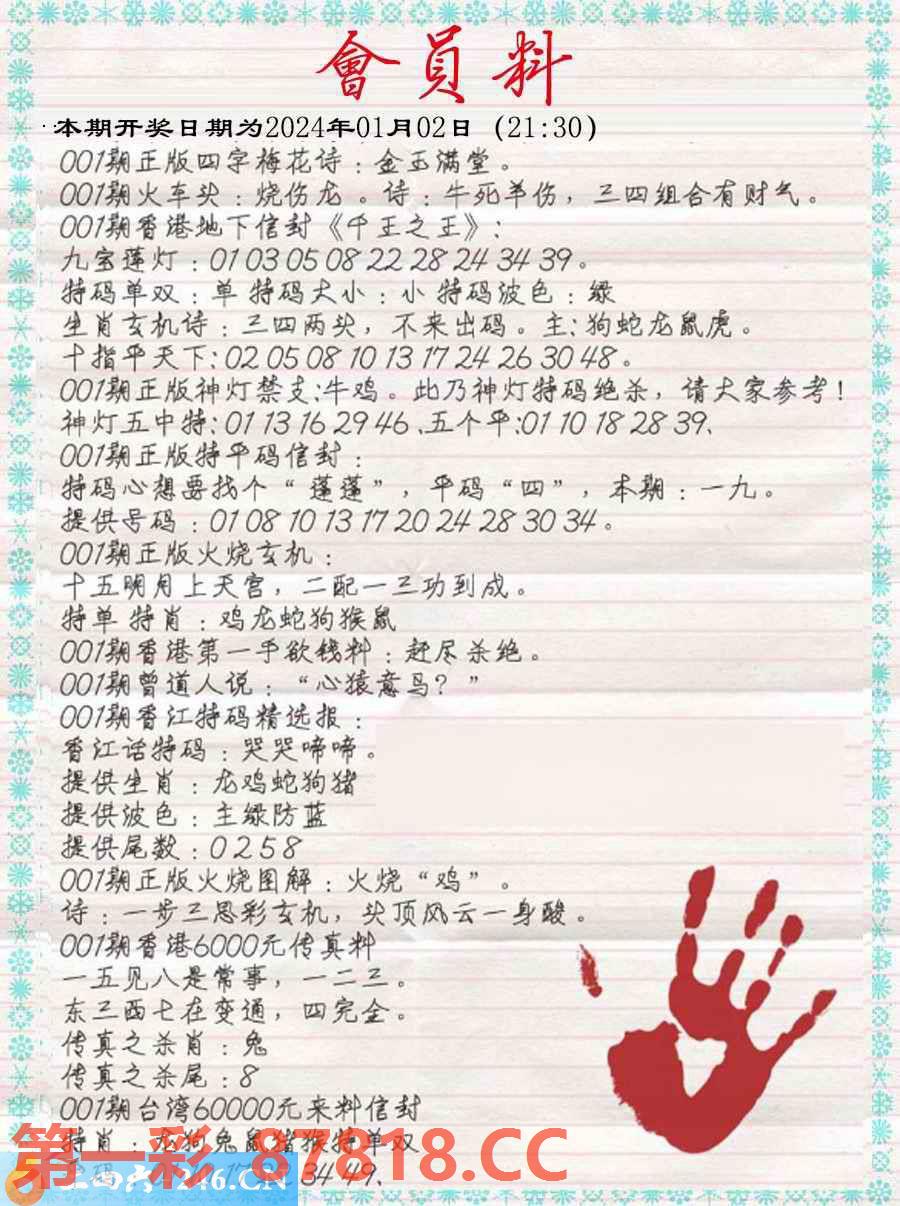 會員料
本期开奖日期为2024年01月02日（21:30）
001期正版四字梅花诗：金玉满堂。
001期火车头：烧伤龙。诗：牛死羊伤，三四组合有财气。
001期香港地下信封《千王之王》：
九宝莲灯：01 03 05 08 22 28 24 34 39。
特码单双：单 特码大小：小 特码波色：绿
生肖玄机诗：三四两头，不来出码。主：狗蛇龙鼠虎。
十指平天下：02 05 08 10 13 17 24 26 30 48。
001期正版神灯禁支：牛鸡。此乃神灯特码绝杀，请大家参考！
神灯五中特：01 13 16 29 46、五个平：01 10 18 28 39、
001期正版特平码信封：
特码心想要找个“蓬蓬”，平码“四”，本期：一九。
提供号码：01 08 10 13 17 20 24 28 30 34。
001期正版火烧玄机：
十五明月上天宫，二配一三功到成。
特单 特肖：鸡龙蛇狗猴鼠
001期香港第一手欲钱料：赶尽杀绝。
001期曾道人说：“心猿意马？”
001期香江特码精选报：
香江话特码：哭哭啼啼。
提供生肖：龙鸡蛇狗猪
提供波色：主绿防蓝
提供尾数：0 2 5 8
001期正版火烧图解：火烧“鸡”。
诗：一步三思彩玄机，头顶风云一身酸。
001期香港6000元传真料
一五见八是常事，一二三。
东三西七在变通，四完全。
传真之杀肖：兔
传真之杀尾：8
001期台湾60000元来料信封
特肖：龙狗兔鼠猪猴特单双
34 49、
第一彩 87818.CC
246.CN